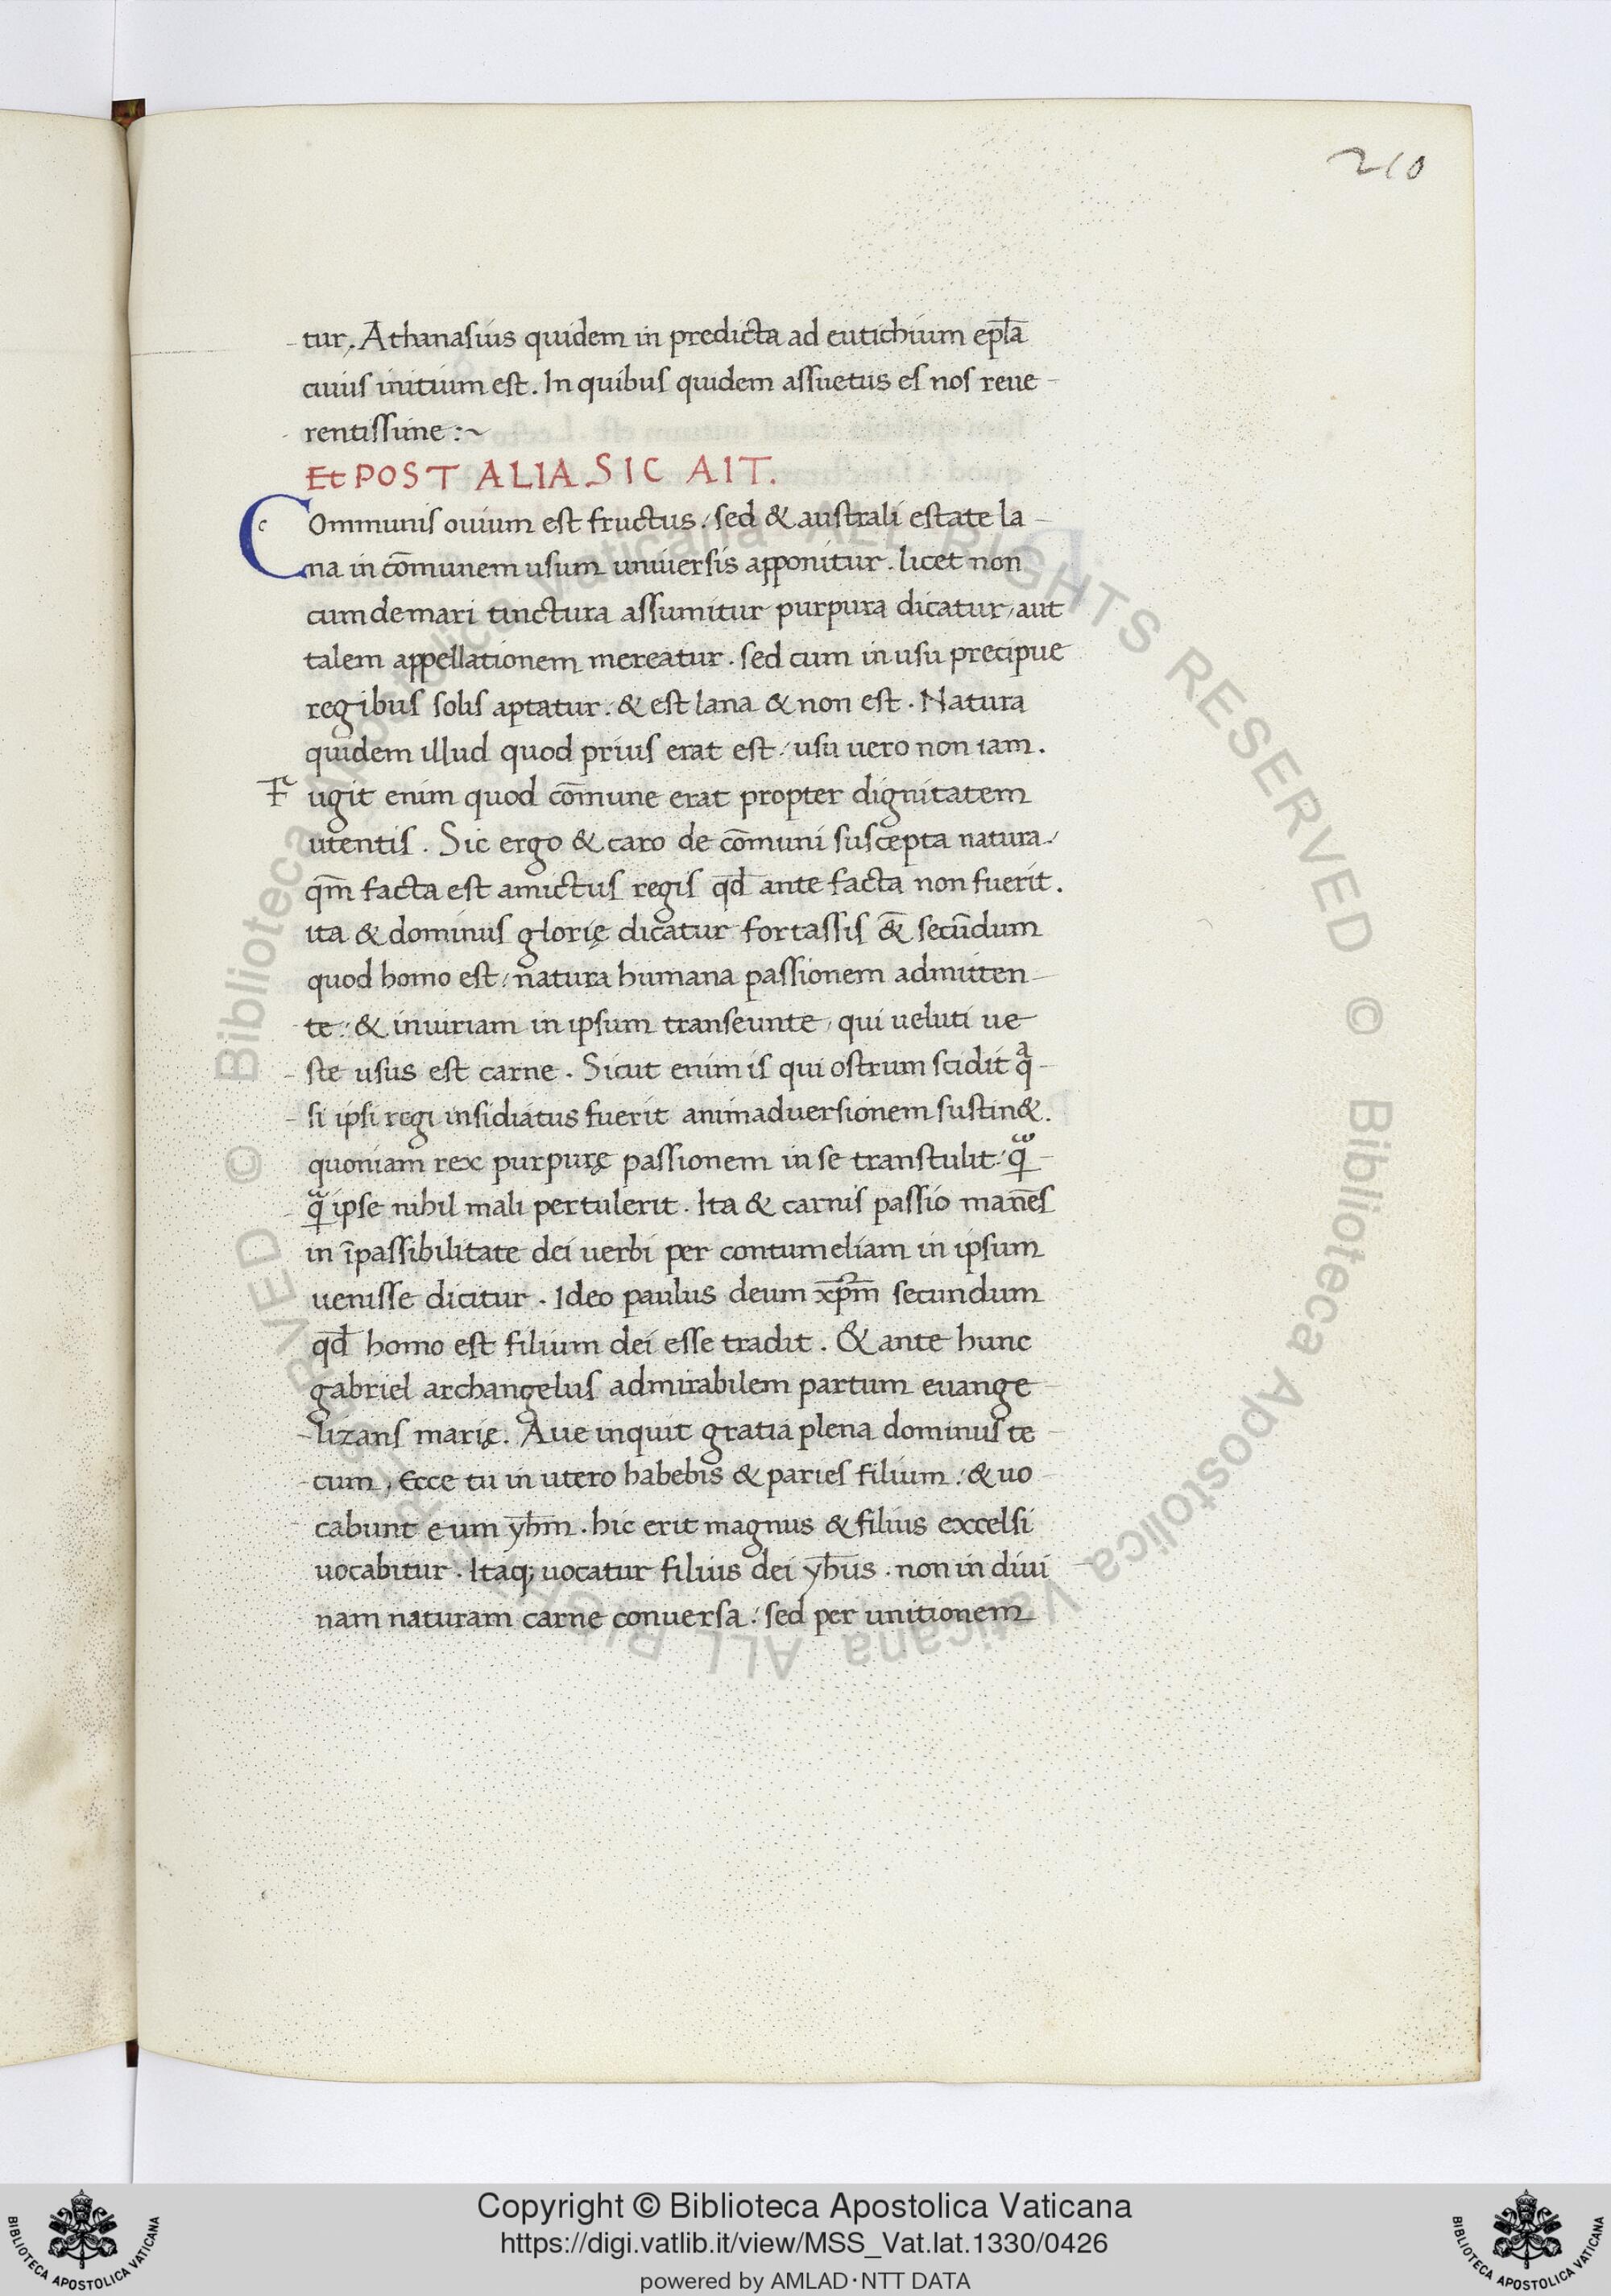 210
tur, Athanasius quidem in predicta ad eutichium ep̅la
cuius initium est. In quibus quidem assuetus es nos reue-
rentissime :~
Et POST ALIA SIC AIT.
Communis ouium est fructus. sed & australi estate la-
na in co̅munem usum uniuersis apponitur. licet non
cum de mari tinctura assumitur purpura dicatur, aut
talem appellationem mereatur. sed cum in usu precipue
regibus solis aptatur. & est lana & non est. Natura
quidem illud quod prius erat est, usu uero non iam.
Fugit enim quod co̅mune erat propter dignitatem
utentis. Sic ergo & caro de co̅muni suscepta natura.
qm̅ facta est amictus regis qd̅ ante facta non fuerit.
ita & dominus glorię dicatur fortassis &̅ secu̅dum
quod homo est, natura humana passionem admitten-
te. & iniuriam in ipsum transeunte, qui ueluti ue-
ste usus est carne. Sicut enim is qui ostrum scidit qͣ-
si ipsi regi insidiatus fuerit animaduersionem sustin&.
quoniam rex purpurę passionem in se transtulit.
ipse nihil mali pertulerit. Ita & carnis passio mane̅s
in i̅passibilitate dei uerbi per contumeliam in ipsum
uenisse dicitur. Ideo paulus deum xp̅m secundum
qd̅ homo est filium dei esse tradit. & ante hunc
gabriel archangelus admirabilem partum euange-
lizans marię. Aue inquit gratia plena dominus te-
cum, Ecce tu in utero habebis & paries filium. & uo-
cabunt eum yh̅m. hic erit magnus & filius excelsi
uocabitur. Itaq; uocatur filius dei yh̅us. non in diui-
nam naturam carne conuersa. sed per unitionem
© Biblioteca Apostolica Vaticana ALL RIGHTS RESERVED © Biblioteca Apostolica Vaticana ALL RIGHTS RESERVED
Copyright © Biblioteca Apostolica Vaticana
https://digi.vatlib.it/view/MSS_Vat.lat.1330/0426
powered by AMLAD·NTT DATA
BIBLIOTECA APOSTOLICA VATICANA
BIBLIOTECA APOSTOLICA VATICANA